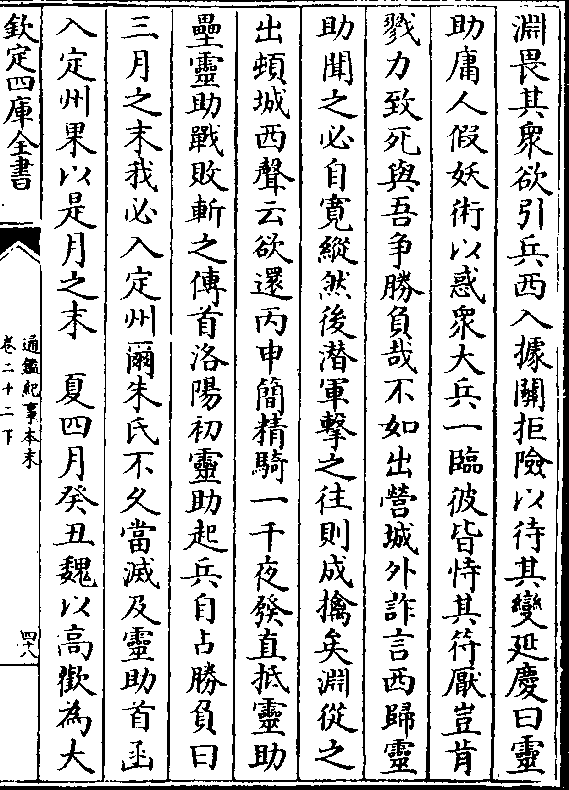 淵畏其衆欲引兵西入據關拒險以待其變延慶曰靈
助庸人假妖術以惑衆大兵一臨彼皆恃其符厭豈肯
戮力致死與吾爭勝負哉不如出營城外詐言西歸靈
助聞之必自寛縱然後潛軍擊之往則成擒矣淵從之
出頓城西聲云欲還丙申簡精騎一千夜發直抵靈助
壘靈助戰敗斬之傳首洛陽初靈助起兵自占勝負曰
三月之末我必入定州爾朱氏不久當滅及靈助首函
入定州果以是月之末　夏四月癸丑魏以高歡為大
欽定四庫全書
通鑑紀事本末
卷二十二下
四八